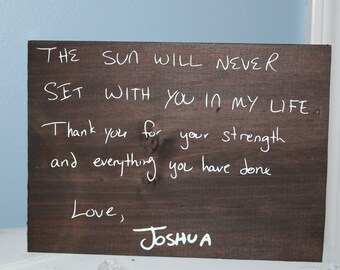 THE SUN WILL NEVER
SET WITH YOU IN MY LIFE
Thank you for your strength
and everything you have done
Love,
JOSHUA